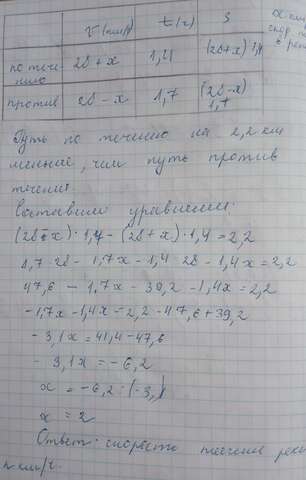 V (км/ч) t (ч) S
по тече- 28 + x 1,4 (28+x) 1,4
нию
против 28 - x 1,7 (28-x)
1,7
Путь по течению на 2,2 км
меньше, чем путь против
течения.
Составим уравнение:
1,7 · 28 - 1,7x - 1,4 · 28 - 1,4x = 2,2
47,6 - 1,7x - 39,2 - 1,4x = 2,2
-1,7x - 1,4x = 2,2 - 47,6 + 39,2
- 3,1x = 41,4 - 47,6
- 3,1x = -6,2
x = -6,2 : (-3,1)
x = 2
Ответ: скорость течения реки
км/ч.